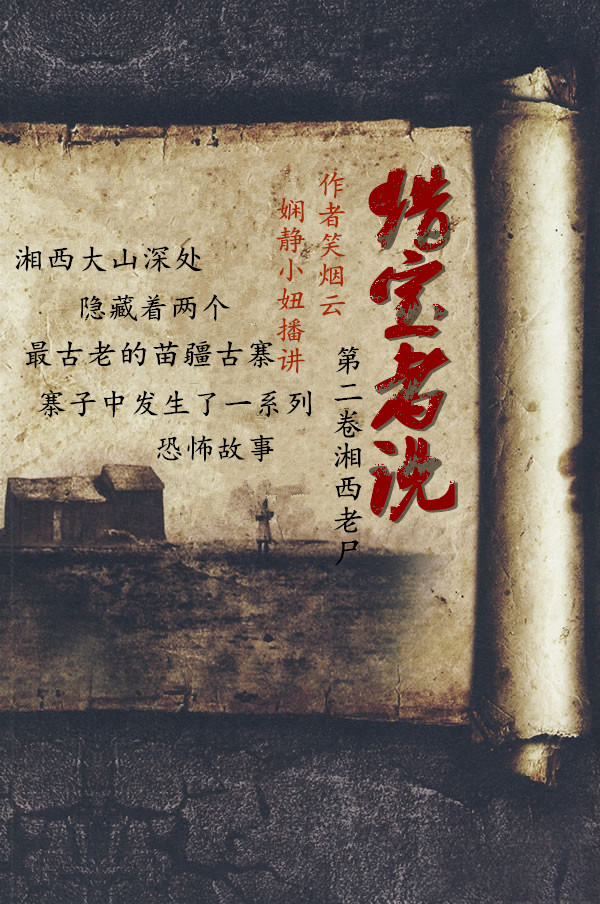 猎宝者说
第二卷湘西老尸
作者笑烟云
娴静小妞播讲
湘西大山深处
隐藏着两个
最古老的苗疆古寨
寨子中发生了一系列
恐怖故事